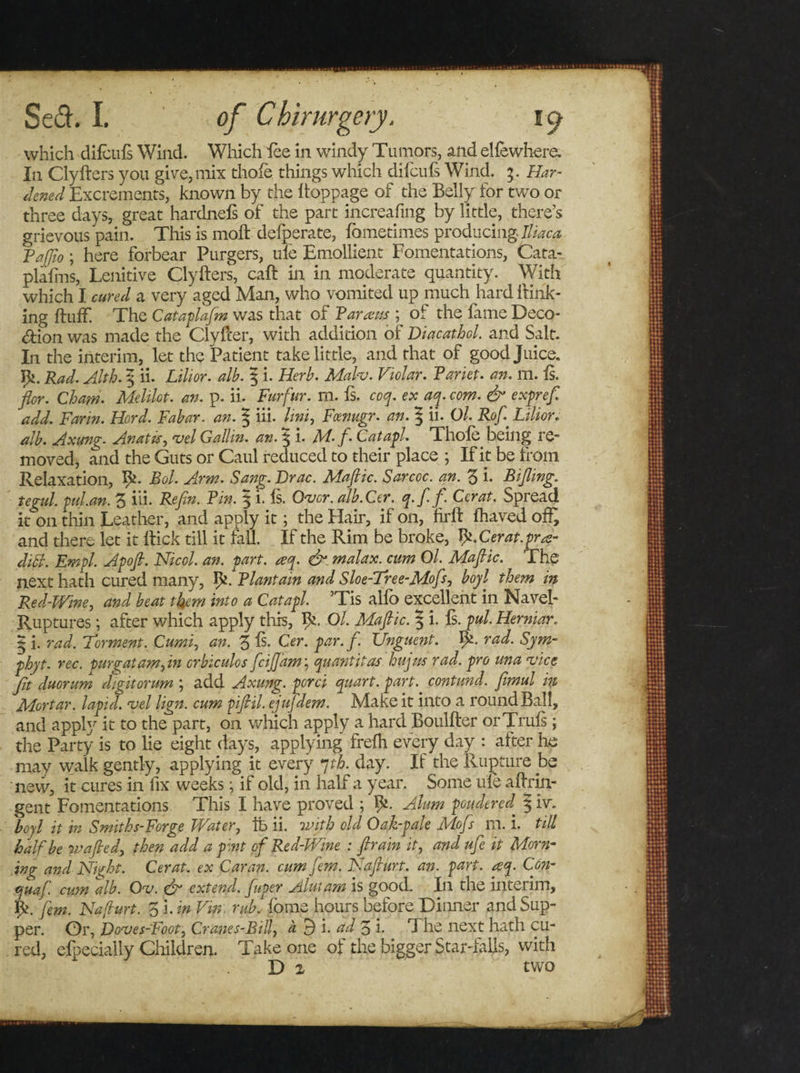 Sect. I. of Chirurgery. 19
which diſcuſs Wind. Which ſee in windy Tumors, and elſewhere.
In Clyſters you give, mix thoſe things which diſcuſs Wind. 3. Har-
dened Excrements, known by the ſtoppage of the Belly for two or
three days, great hardneſs of the part increaſing by little, there's
grievous pain. This is moſt deſperate, ſometimes producing Iliaca
Paſſio ; here forbear Purgers, uſe Emollient Fomentations, Cata-
plaſms, Lenitive Clyſters, caſt in in moderate quantity. With
which I cured a very aged Man, who vomited up much hard ſtink-
ing ſtuff. The Cataplaſm was that of Paræus ; of the ſame Deco-
ction was made the Clyſter, with addition of Diacathol. and Salt.
In the interim, let the Patient take little, and that of good Juice.
℞. Rad. Alth. ℥ ii. Lilior. alb. ℥ i. Herb. Malv. Violar. Pariet. an. m. ſs.
flor. Cham. Melilot. an. p. ii. Furfur. m. ſs. coq. ex aq. com. & expreſ.
add. Farin. Hord. Fabar. an. ℥ iii. lini, Fœnugr. an. ℥ ii. Ol. Roſ. Lilior.
alb. Axung. Anatis, vel Gallin. an. ℥ i. M. f. Catapl. Thoſe being re-
moved, and the Guts or Caul reduced to their place ; If it be from
Relaxation, ℞. Bol. Arm. Sang. Drac. Maſtic. Sarcoc. an. ʒ i. Biſling.
tegul. pul. an. ʒ iii. Reſin. Pin. ℥ i. ſs. Ovor. alb. Cer. q. ſ. f. Cerat. Spread
it on thin Leather, and apply it ; the Hair, if on, firſt ſhaved off,
and there let it ſtick till it fall. If the Rim be broke, ℞. Cerat. præ-
dict. Empl. Apoſt. Nicol. an. part. æq. & malax. cum Ol. Maſtic. The
next hath cured many, ℞. Plantain and Sloe-Tree-Moſs, boyl them in
Red-Wine, and beat them into a Catapl. 'Tis alſo excellent in Navel-
Ruptures ; after which apply this, ℞. Ol. Maſtic. ℥ i. ſs. pul. Herniar.
℥ i. rad. Torment. Cumi, an. ʒ ſs. Cer. par. f. Unguent. ℞. rad. Sym-
phyt. rec. purgatam, in orbiculos ſciſſam ; quantitas hujus rad. pro una vice
ſit duorum digitorum ; add Axung. porci quart. part. contund. ſimul in
Mortar. lapid. vel lign. cum piſtil. ejuſdem. Make it into a round Ball,
and apply it to the part, on which apply a hard Boulſter or Truſs ;
the Party is to lie eight days, applying freſh every day : after he
may walk gently, applying it every 7th. day. If the Rupture be
new, it cures in ſix weeks ; if old, in half a year. Some uſe aſtrin-
gent Fomentations This I have proved ; ℞. Alum poudered ℥ iv.
boyl it in Smiths-Forge Water, ℔ ii. with old Oak-pale Moſs m. i. till
half be waſted, then add a pint of Red-Wine : ſtrain it, and uſe it Morn-
ing and Night. Cerat. ex Caran. cum ſem. Naſturt. an. part. æq. Con-
quaſ. cum alb. Ov. & extend. ſuper Alutam is good. In the interim,
℞. ſem. Naſturt. ʒ i. in Vin. rub. ſome hours before Dinner and Sup-
per. Or, Doves-Foot, Cranes-Bill, à ℈ i. ad ʒ i. The next hath cu-
red, eſpecially Children. Take one of the bigger Star-falls, with
D 2 two